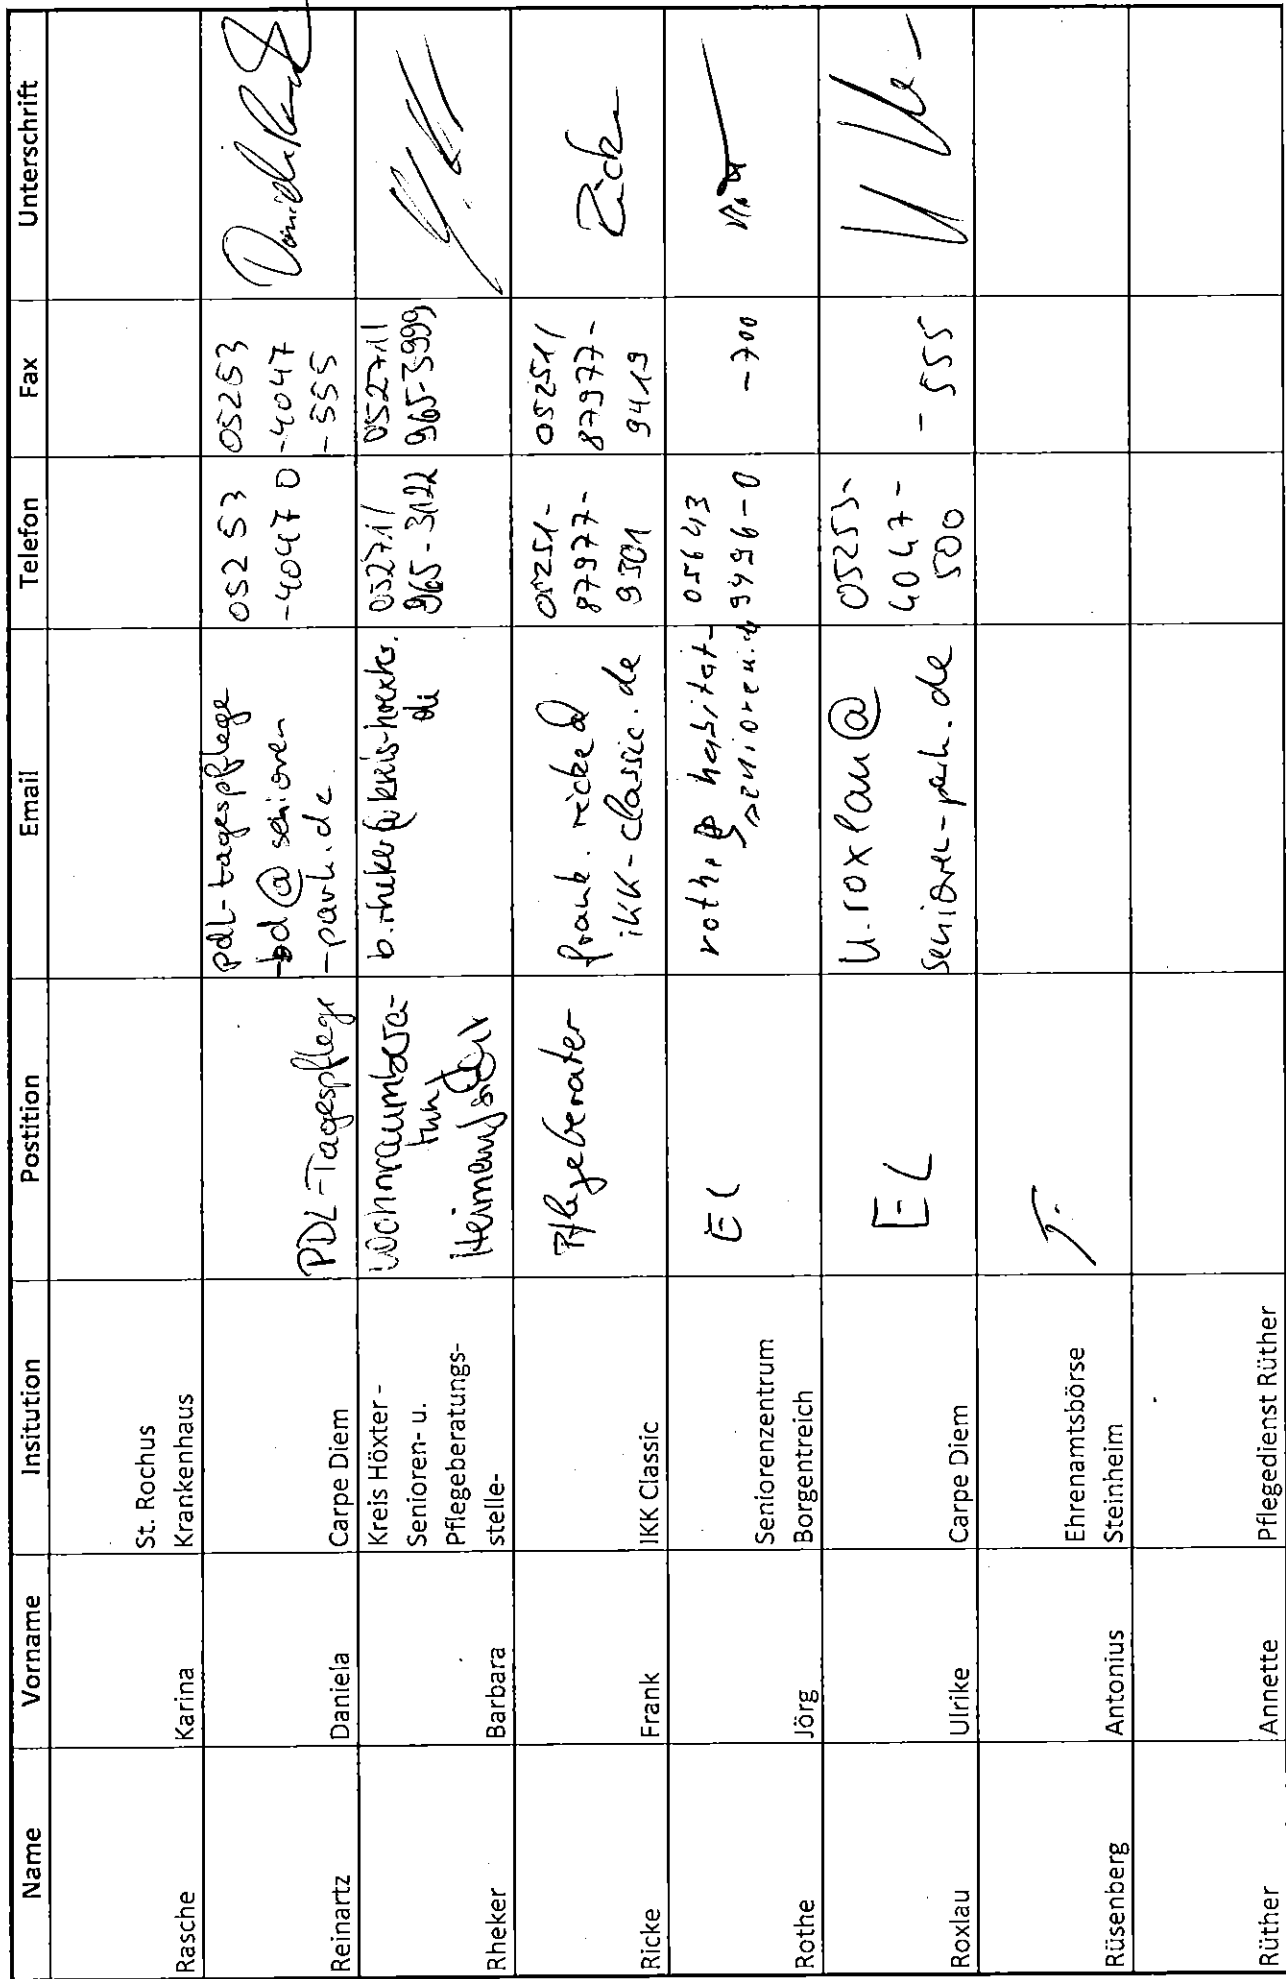 Name Vorname Insitution Postition Email Telefon Fax Unterschrift
Rasche Karina St. Rochus
Krankenhaus
Reinartz Daniela Carpe Diem PDL-Tagespflege pdl-tagespflege
-bd@senioren
-park.de 05253
-4047 0 05253
-4047
-555
Rheker Barbara Kreis Höxter -
Senioren- u.
Pflegeberatungs-
stelle- Wohnraumbera-
tung
b.rheker@kreis-hoexter.
de 05271/
965-3122 05271/
965-3999
Ricke Frank IKK Classic Pflegeberater frank.ricke@
ikk-classic.de 05251-
87977-
9301 05251/
87977-
9419 Ricke
Rothe Jörg Seniorenzentrum
Borgentreich EL rothe@habitat-
senioren.de 05643
9496-0 -700
Roxlau Ulrike Carpe Diem EL u.roxlau@
senioren-park.de 05253-
4047-
500 -555
Rüsenberg Antonius Ehrenamtsbörse
Steinheim
Rüther Annette Pflegedienst Rüther